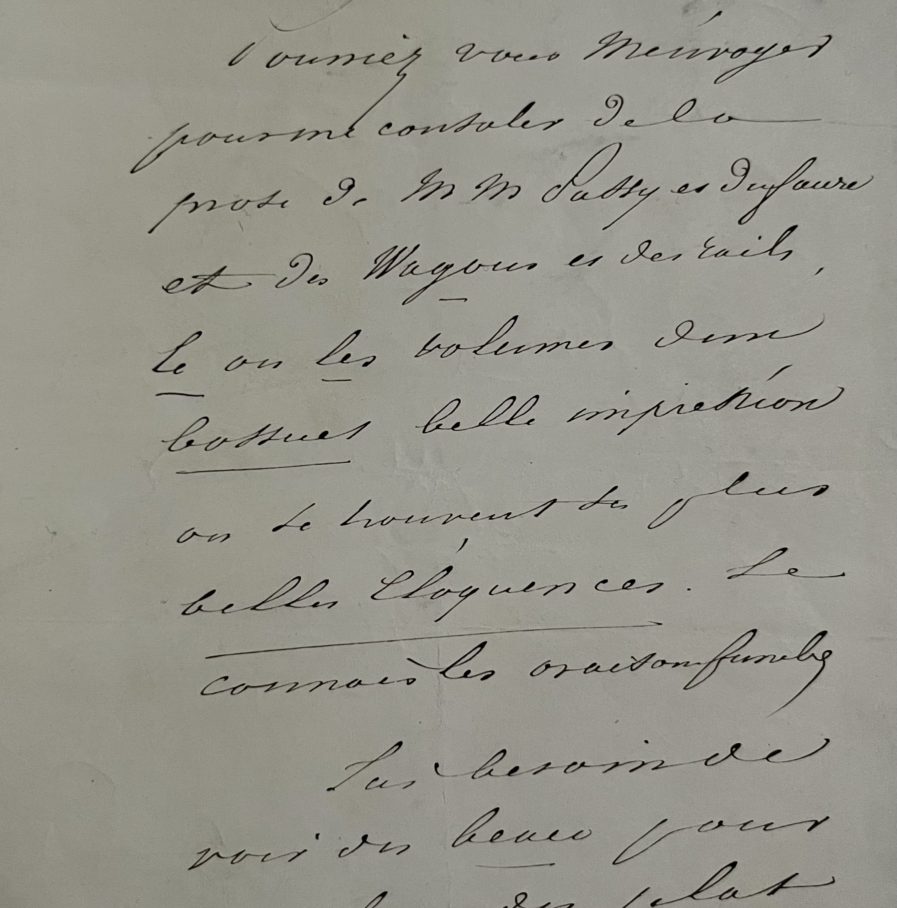 Pourriez vous M'envoyer
pour me consoler de la
prose de M M Passy et Dufaure
et des Wagons et des rails,
le ou les volumes d'un
bossuet belle impression
ou se trouvent ses plus
belles Eloquences. Je
connais les oraisons funeb
J'ai besoin de
voir du beau pour
du plat